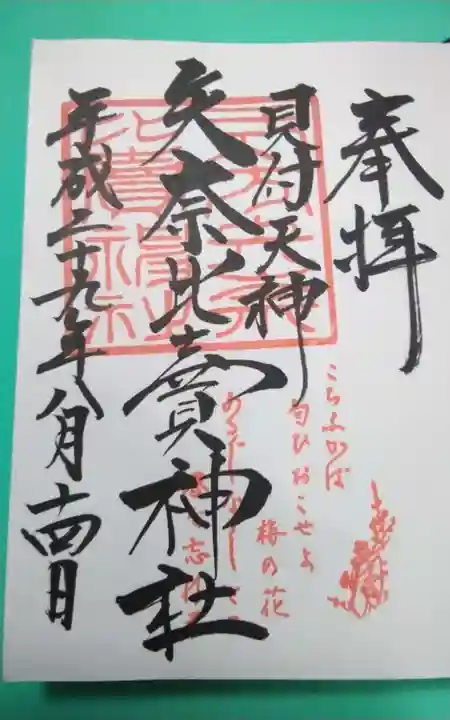 奉拝
見付天神
矢奈比賣神社
平成二十九年八月十四日
こちふかば
匂ひおこせよ
梅の花
あるじなしとて